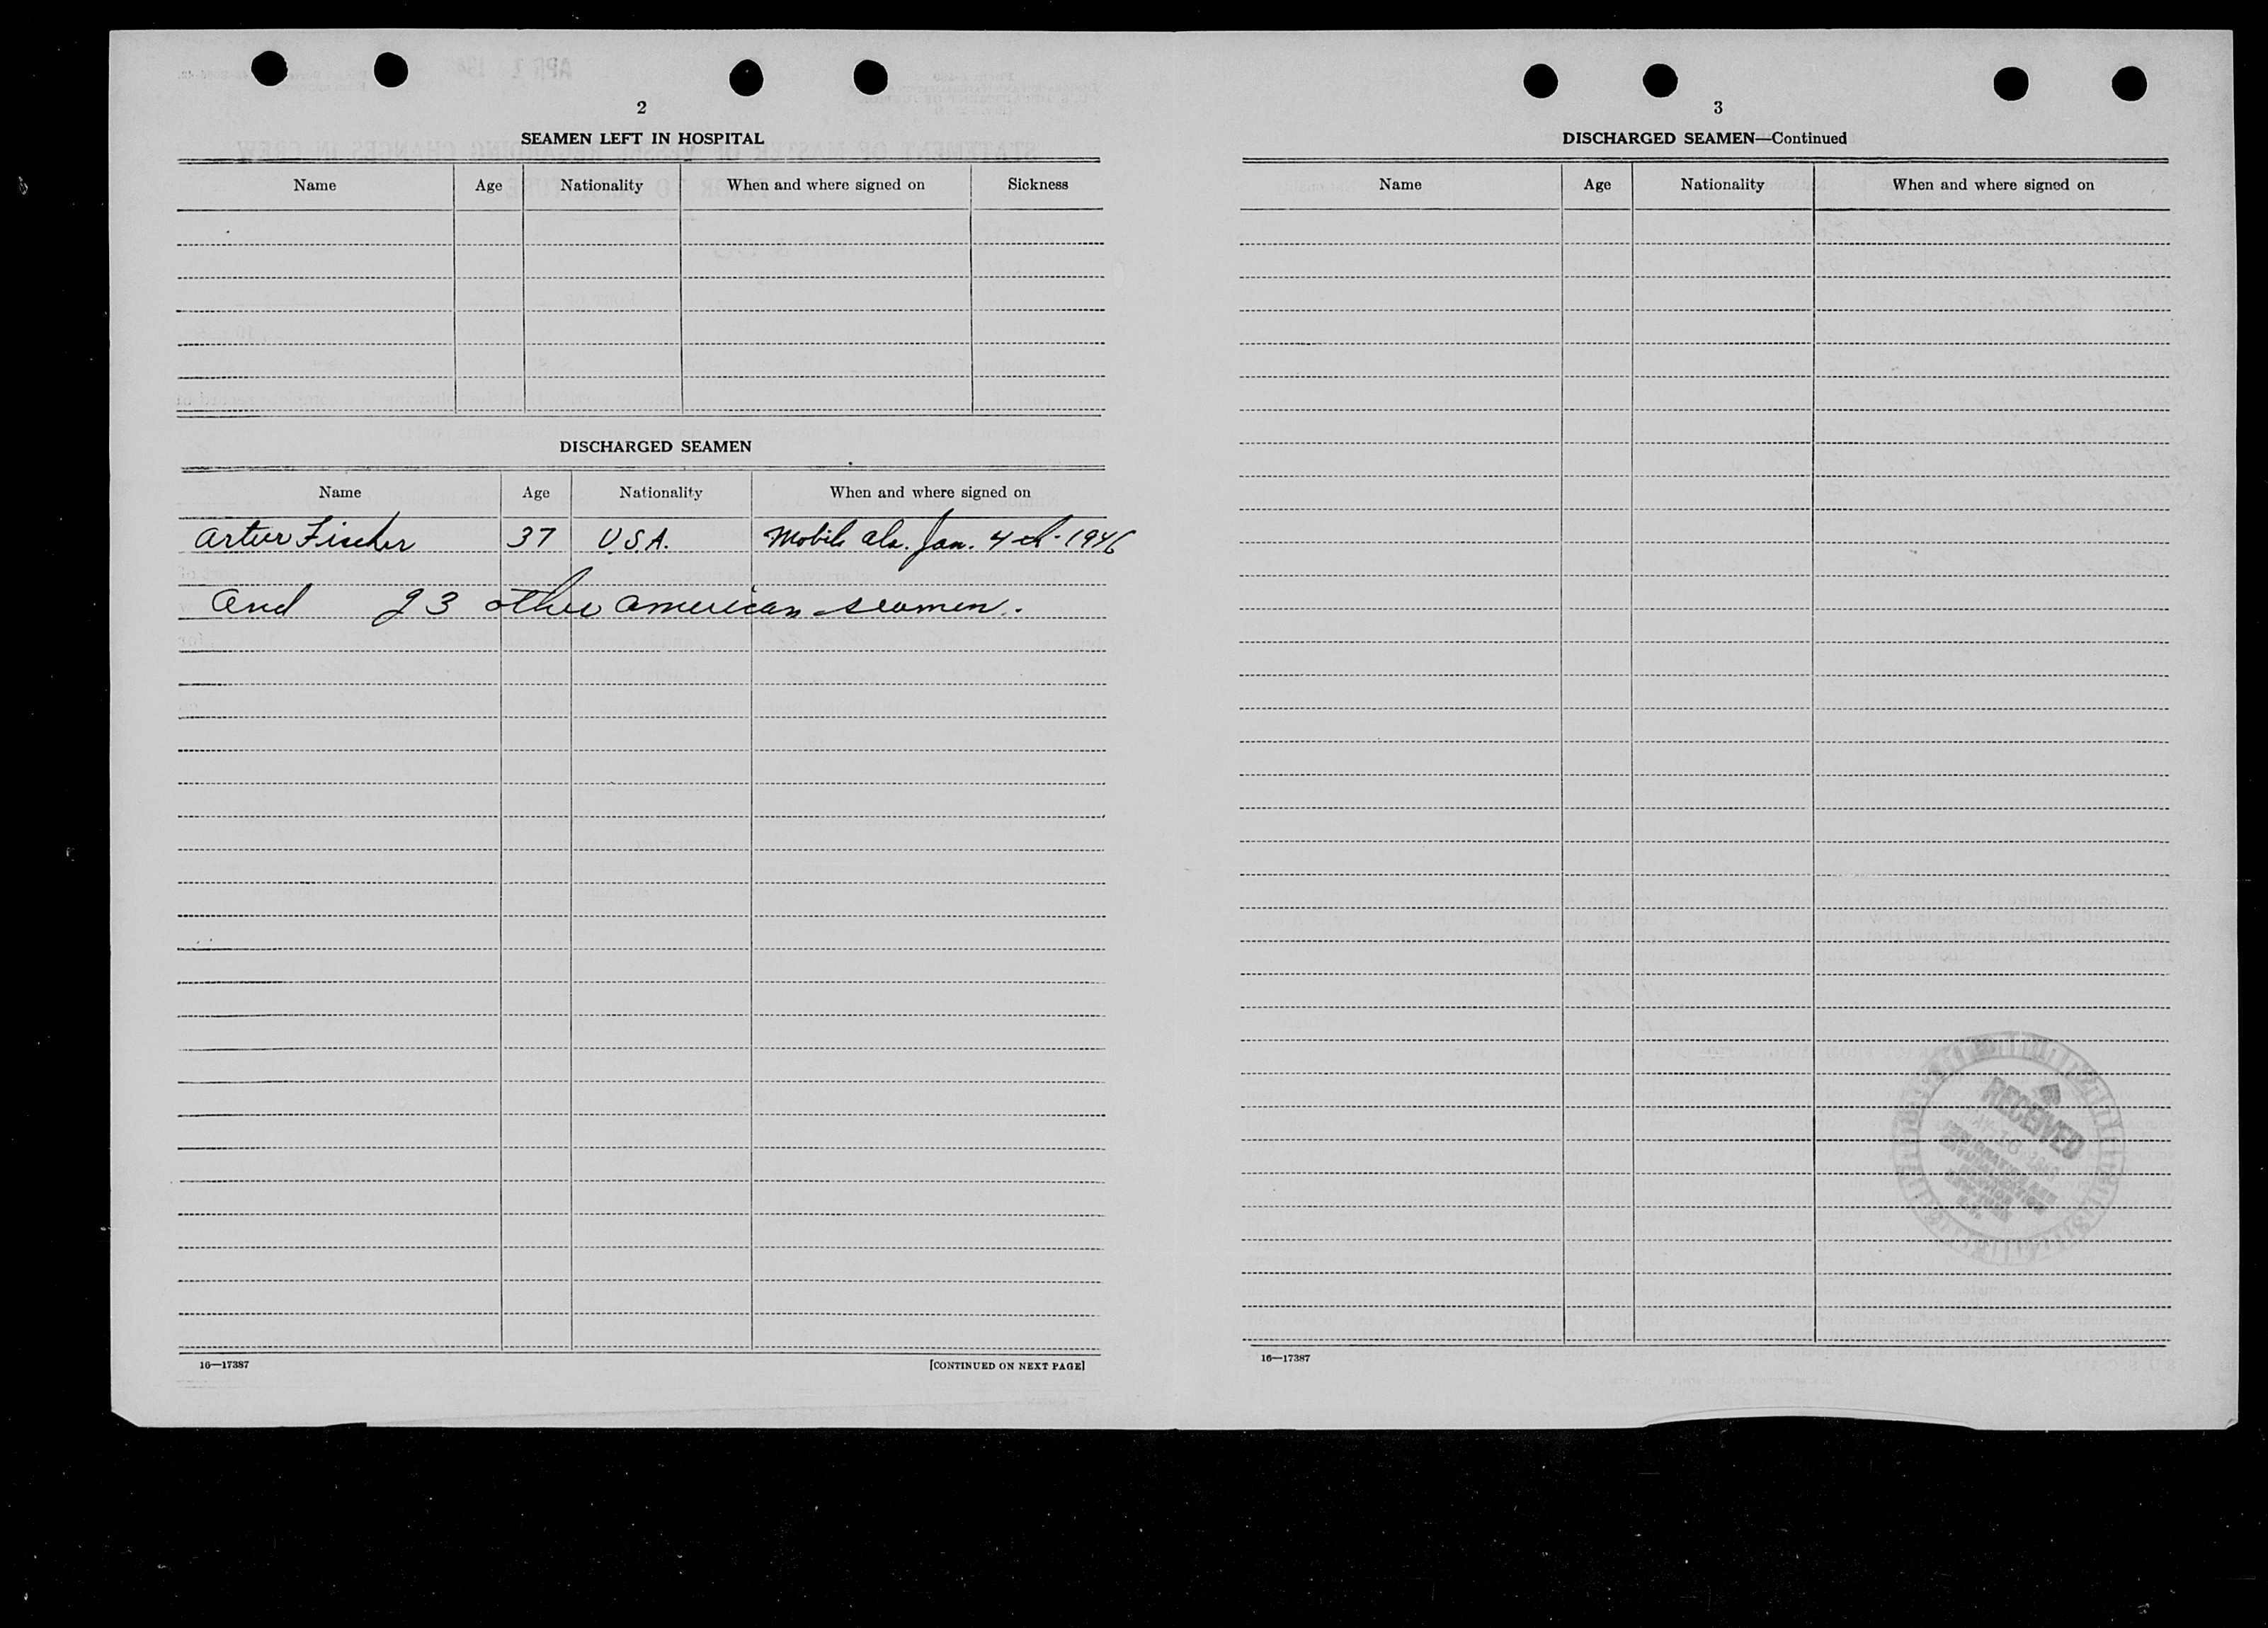 2
SEAMEN LEFT IN HOSPITAL
Name Age Nationality When and where signed on Sickness
DISCHARGED SEAMEN
Name Age Nationality When and where signed on
Artur Fischer 37 U.S.A. Mobile Ala. Jan. 4 th. 1946
And 23 other American seamen.
16—17387 [CONTINUED ON NEXT PAGE]
3
DISCHARGED SEAMEN—Continued
Name Age Nationality When and where signed on
RECEIVED
16—17387